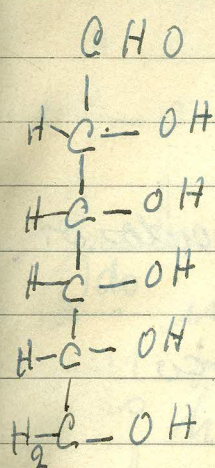 CHO
H-C-OH
H-C-OH
H-C-OH
H-C-OH
H2-C-OH